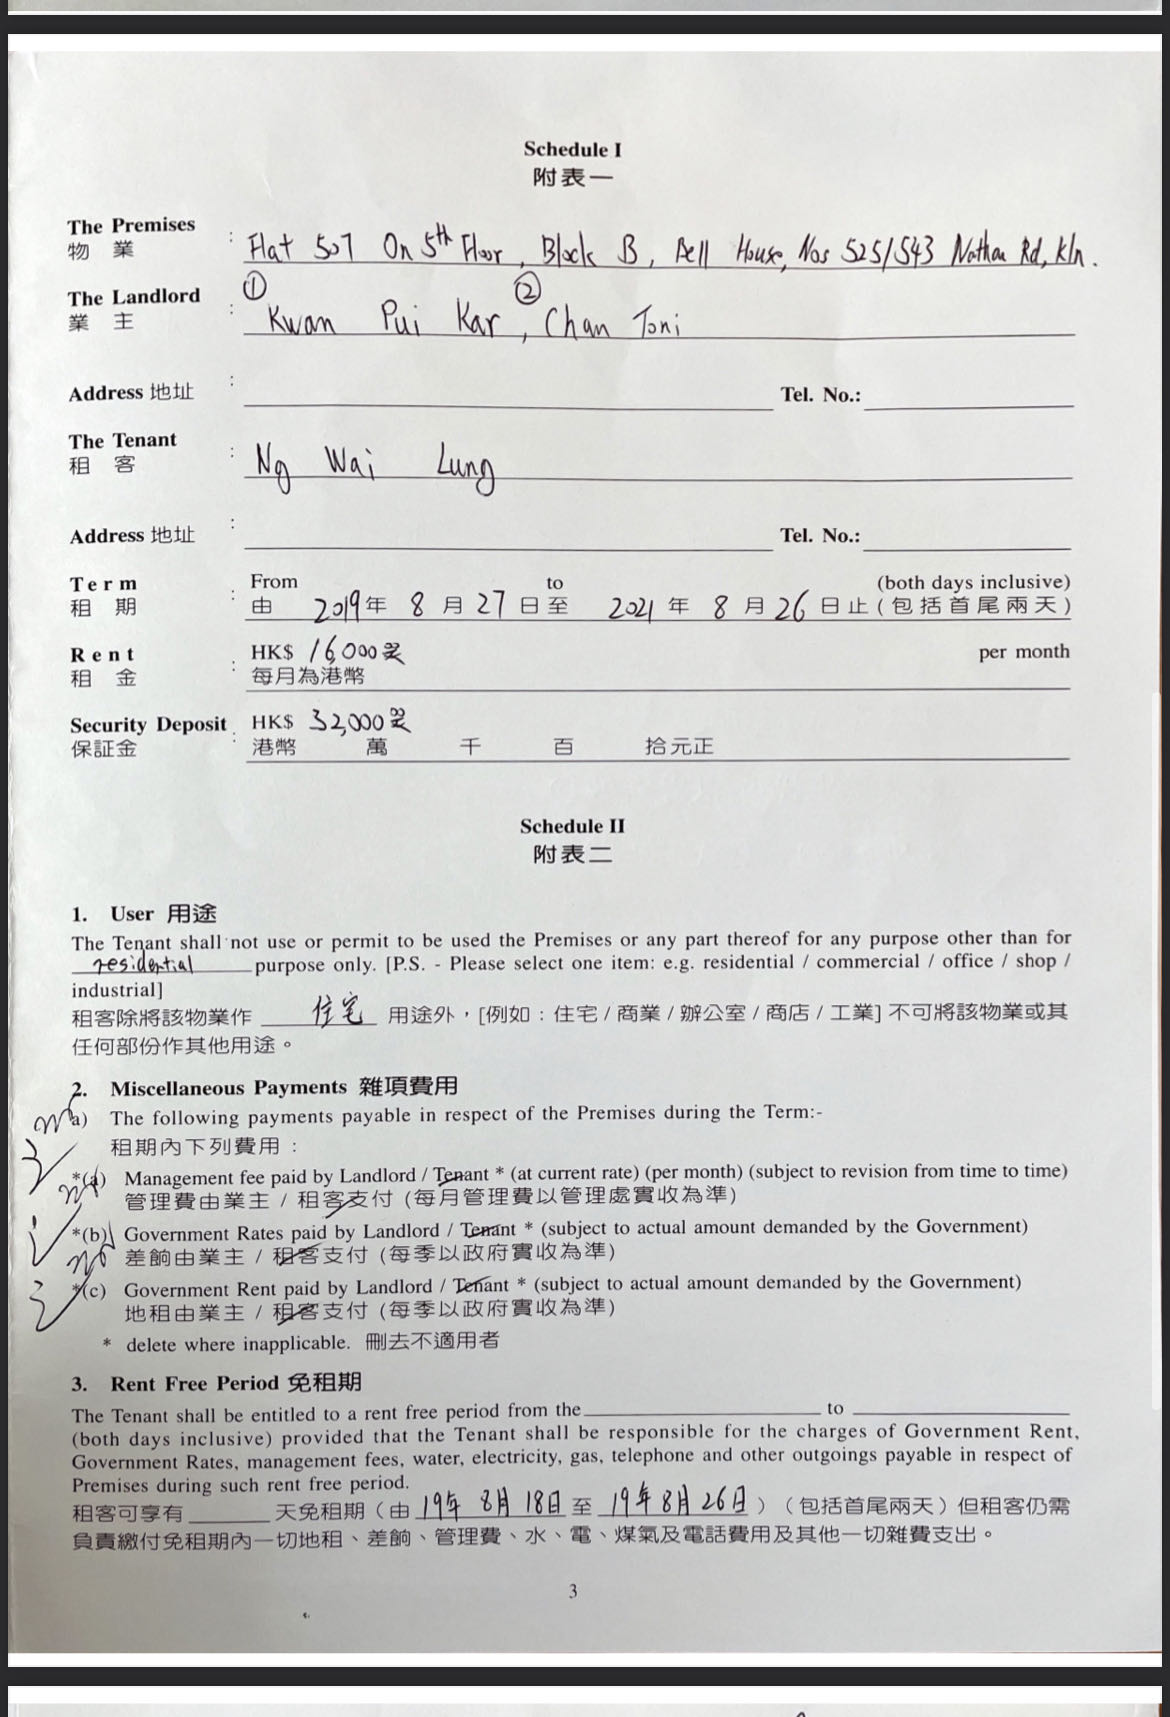 Schedule I
附表一
The Premises : Flat 507 On 5th Floor, Block B, Bell House, Nos 525/543 Nathan Rd, Kln.
物 業
① ②
The Landlord : Kwan Pui Kar, Chan Toni
業 主
Address 地址 : Tel. No.:
The Tenant : Ng Wai Lung
租 客
Address 地址 : Tel. No.:
Term : From to (both days inclusive)
租 期 由 2019年 8 月 27 日至 2021 年 8 月 26 日止 (包括首尾兩天)
Rent : HK$ 16,000 per month
租 金 每月為港幣
Security Deposit : HK$ 32,000
保証金 港幣 萬 千 百 拾元正
Schedule II
附表二
1. User 用途
The Tenant shall not use or permit to be used the Premises or any part thereof for any purpose other than for
residential purpose only. [P.S. - Please select one item: e.g. residential / commercial / office / shop /
industrial]
租客除將該物業作 住宅 用途外，[例如：住宅 / 商業 / 辦公室 / 商店 / 工業] 不可將該物業或其
任何部份作其他用途。
2. Miscellaneous Payments 雜項費用
a) The following payments payable in respect of the Premises during the Term:-
租期內下列費用：
*(a) Management fee paid by Landlord / Tenant * (at current rate) (per month) (subject to revision from time to time)
管理費由業主 / 租客支付 (每月管理費以管理處實收為準)
*(b) Government Rates paid by Landlord / Tenant * (subject to actual amount demanded by the Government)
差餉由業主 / 租客支付 (每季以政府實收為準)
*(c) Government Rent paid by Landlord / Tenant * (subject to actual amount demanded by the Government)
地租由業主 / 租客支付 (每季以政府實收為準)
* delete where inapplicable. 刪去不適用者
3. Rent Free Period 免租期
The Tenant shall be entitled to a rent free period from the to
(both days inclusive) provided that the Tenant shall be responsible for the charges of Government Rent,
Government Rates, management fees, water, electricity, gas, telephone and other outgoings payable in respect of
Premises during such rent free period.
租客可享有 天免租期（由 19年 8月 18日 至 19年8月26日 ）（包括首尾兩天）但租客仍需
負責繳付免租期內一切地租、差餉、管理費、水、電、煤氣及電話費用及其他一切雜費支出。
3